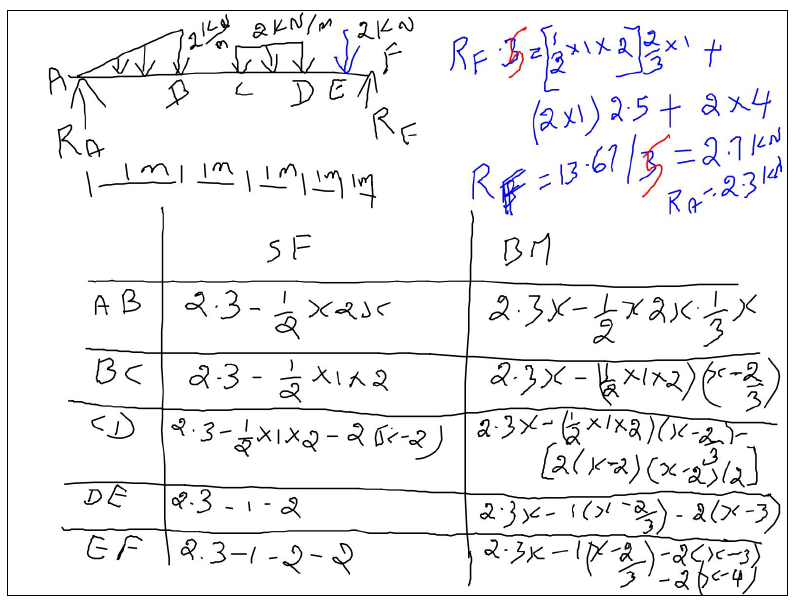 2kN/m 2kN/m 2kN
A B C D E F
R_A R_F
1m 1m 1m 1m 1m
R_F · 5 = [1/2 ×1×2] 2/3 ×1 +
(2×1) 2.5 + 2×4
R_F = 13.67/5 = 2.7kN
R_A = 2.3kN
SF BM
AB 2.3 - 1/2 ×2x 2.3x - 1/2 ×2x · 1/3 x
BC 2.3 - 1/2 ×1×2 2.3x - (1/2 ×1×2)(x-2/3)
CD 2.3 - 1/2 ×1×2 - 2(x-2) 2.3x - (1/2 ×1×2)(x-2/3) -
[2(x-2)(x-2)/2]
DE 2.3 - 1 - 2 2.3x - 1(x-2/3) - 2(x-3)
EF 2.3-1-2-2 2.3x - 1(x-2/3) - 2(x-3)
- 2(x-4)